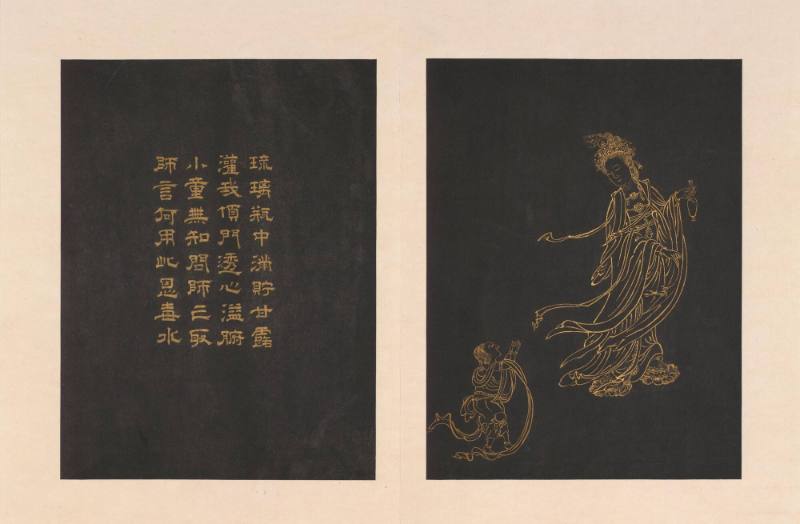 琉璃瓶中滿貯甘露
灌我頂門透心溢腑
小童無知問師乞取
師言何用此惡毒水